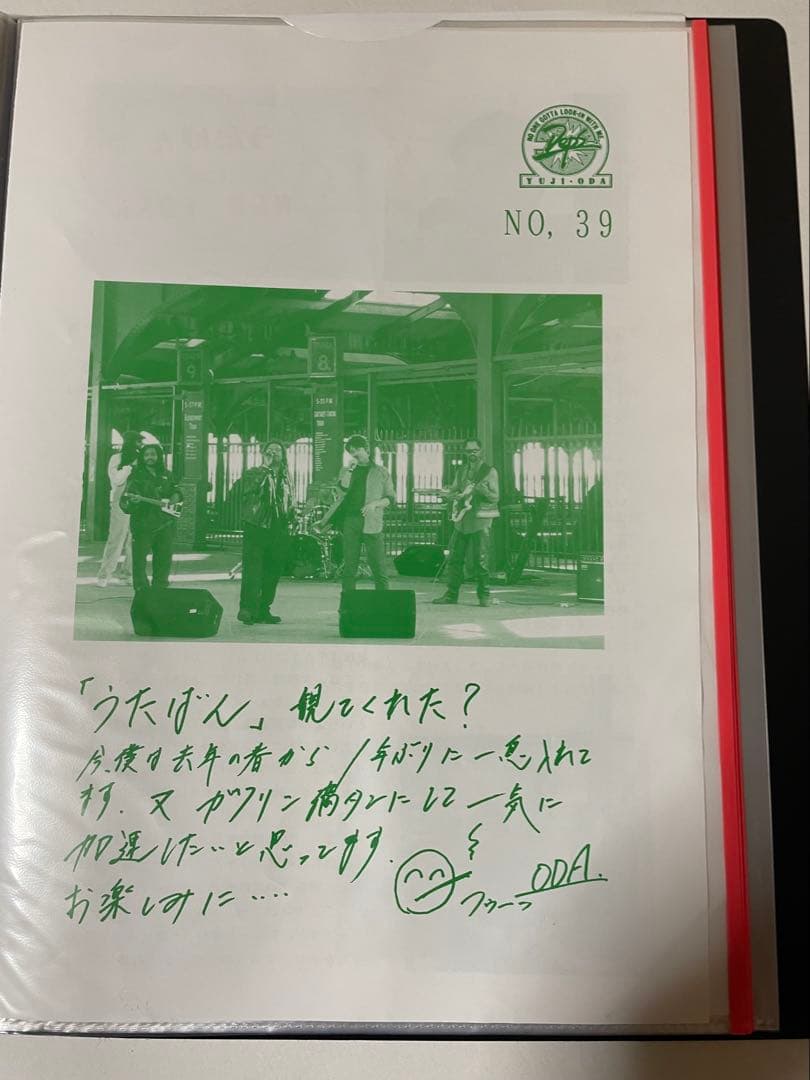 NO ONE GOTTA LOOK-IN WITH ME.
YUJI・ODA
NO, 39
9
8
「うたばん」観てくれた?
今、僕は去年の春から1年ぶりに一息入れて
ます。又ガソリン満タンにして一気に
加速したいと思ってます。
お楽しみに‥‥
フゥーッ
ODA.